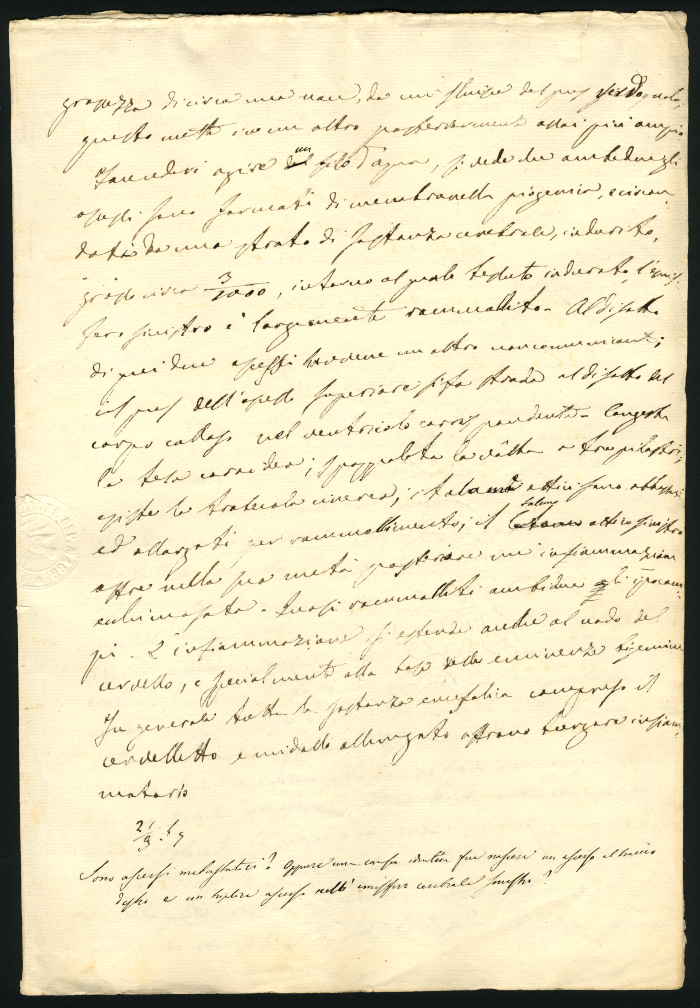 grossezza di circa una noce, da cui fluisce del pus verdognolo,
questo mette in un altro posteriormente assai più ampio
Facendovi agire un filo d'agua, si vede che ambedue gli
ascessi sono formati di membranella piogenica, e circon
dati da uno strato di sostanza cerebrale, indurito,
grosso circa 3/1000, intorno al quale tessuto indurato, l'emis
fero sinistro è largamente rammollito. Al disotto
di questi due ascessi havvene un altro non comunicante;
il pus dell'ascesso superiore si fa strada al disotto del
corpo calloso nel ventricolo corrispondente. Congesta
la tela coroidea; spappolata la vôlta a tre pilastri;
esiste la trabecola cinerea; i talami ottici sono abbassati
ed allargati per rammollimento; il talamo ottico sinistro
offre nella sua metà posteriore un'infiammazione
echimosata. Quasi rammolliti ambidue gli ipocam
pi. L'infiammazione si estende anche al nodo del
cervello, e specialmente alla base delle eminenze bigemine
In generale tutta la sostanza encefalica compreso il
cervelletto e midollo allungato offrono turgore infiam
matorio
Sono ascessi metastatici? Oppure una causa identica fece nascere un ascesso al braccio
destro e un triplice ascesso nell'emisfero cerebrale sinistro?